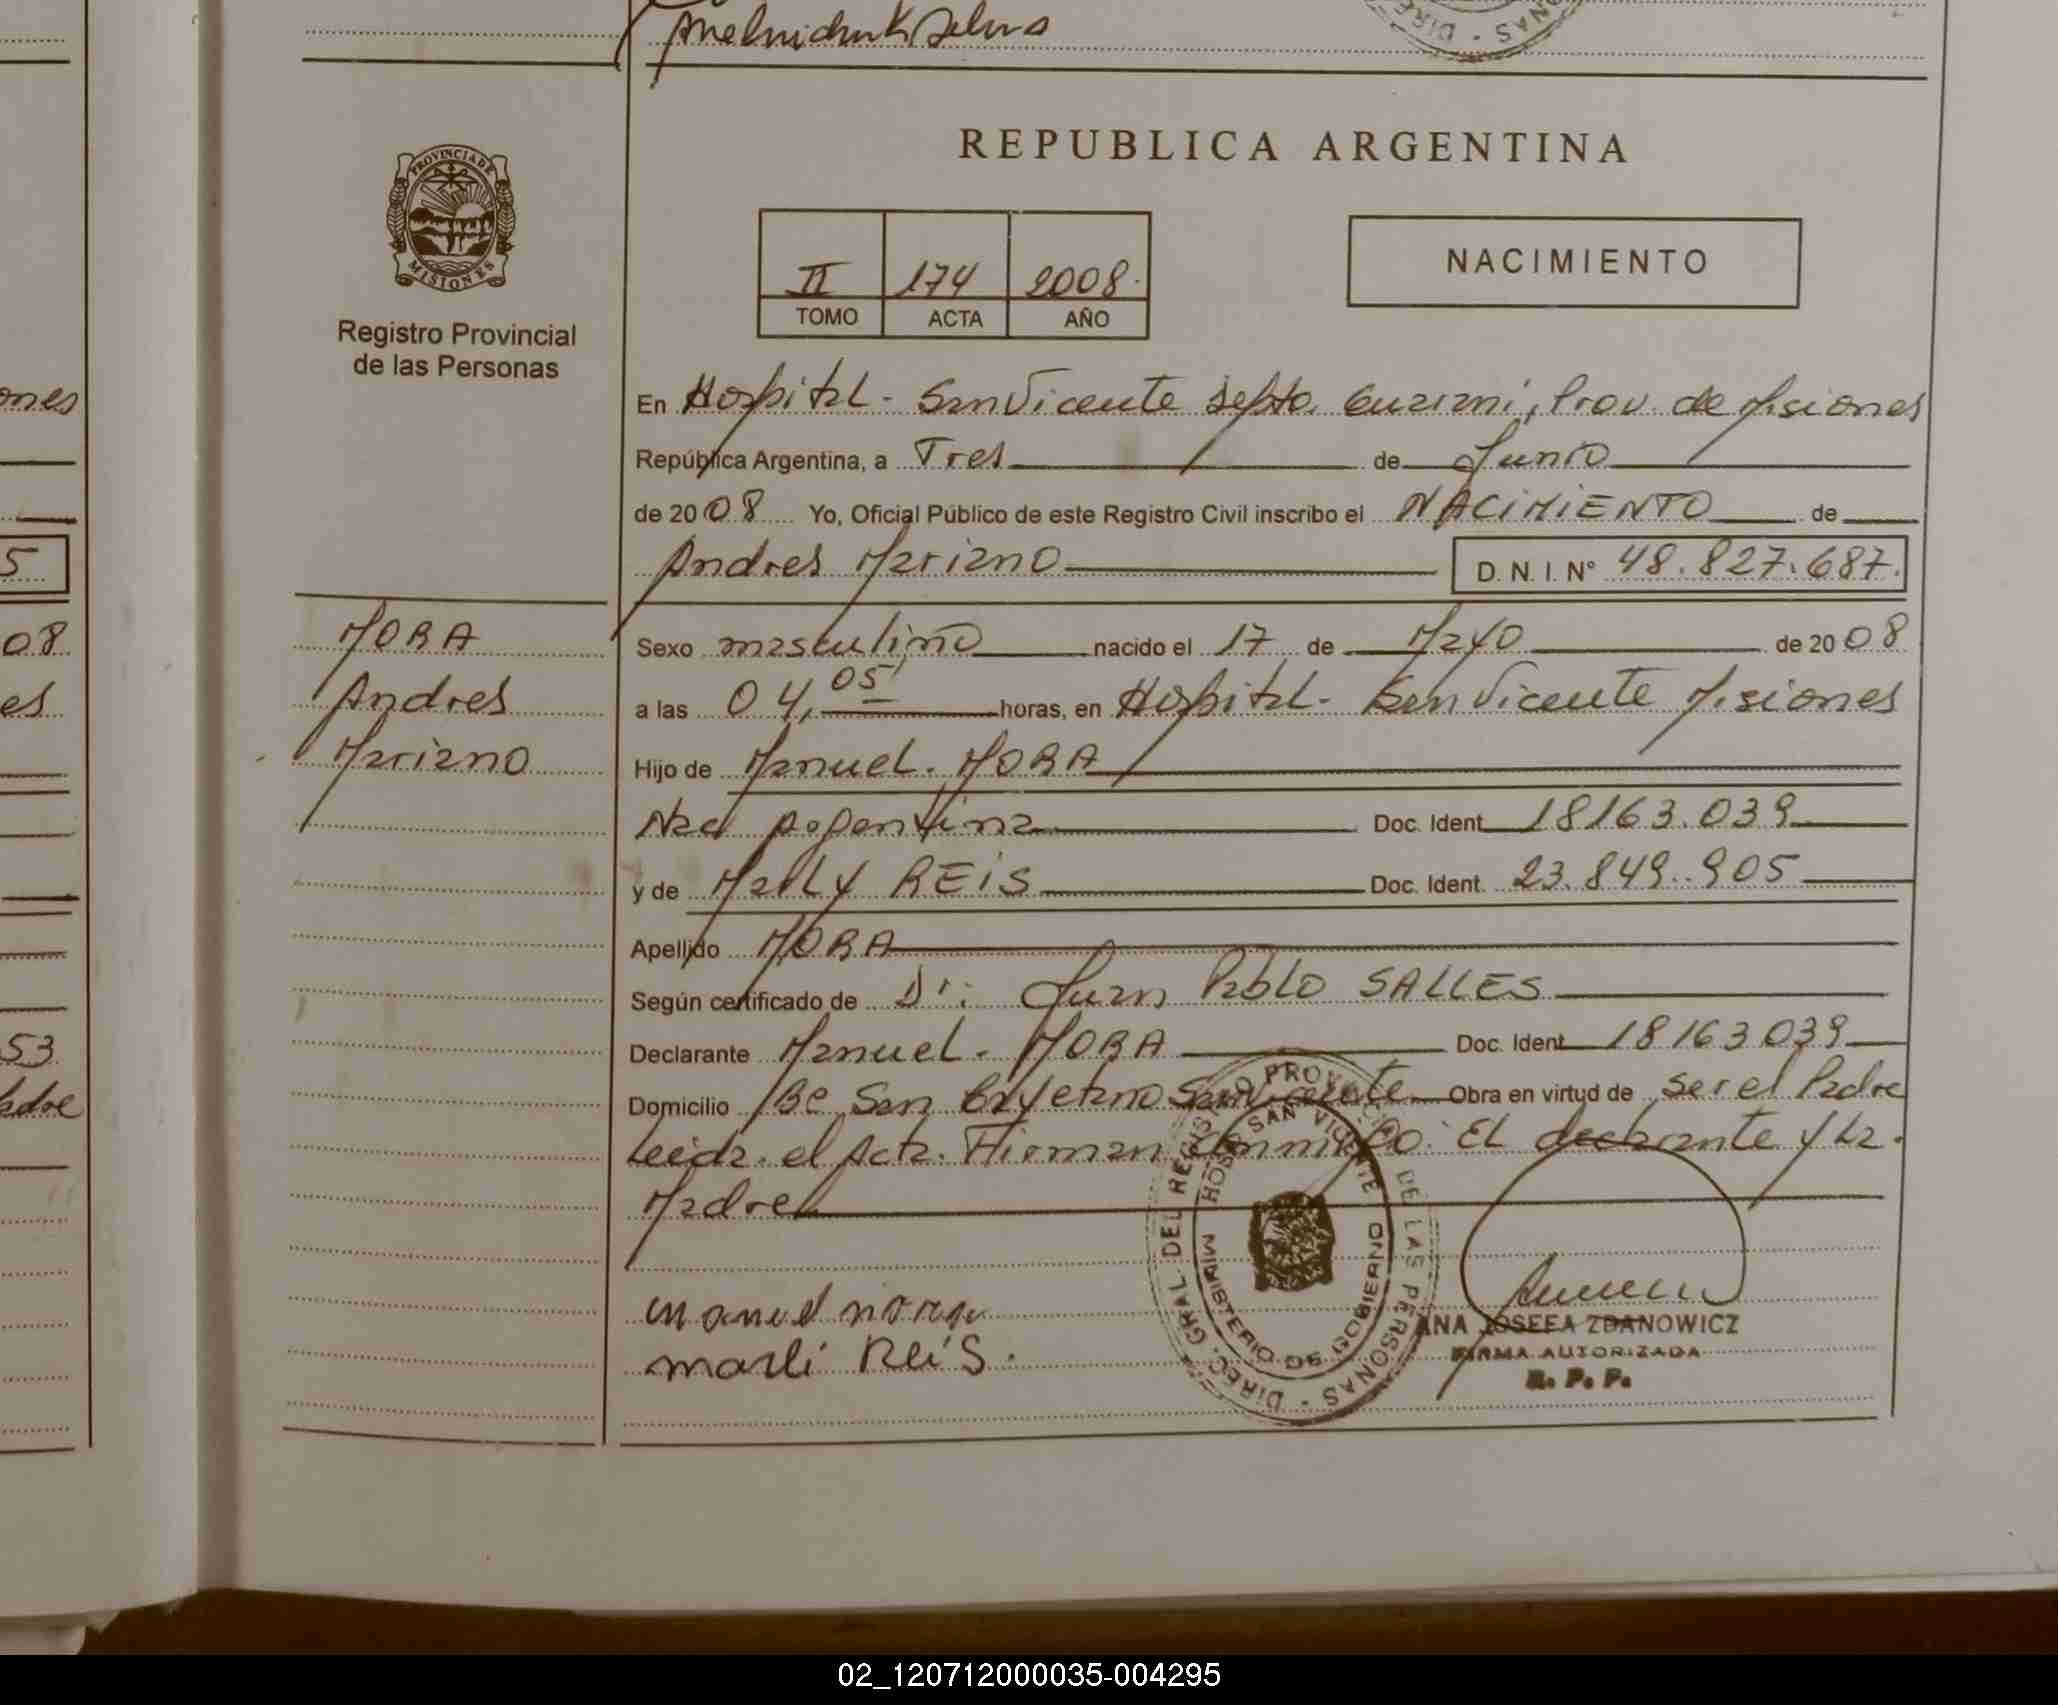 Melnichuk Selva
REPUBLICA ARGENTINA
PROVINCIA DE
MISIONES
Registro Provincial
de las Personas
II 174 2008.
TOMO ACTA AÑO
NACIMIENTO
En Hospital - San Vicente Depto. Guarani, Prov. de Misiones
República Argentina, a Tres de Junio
de 2008 Yo, Oficial Público de este Registro Civil inscribo el NACIMIENTO de
Andres Mariano D. N. I. N° 48.827.687.
MORA
Andres
Mariano
Sexo masculino nacido el 17 de Mayo de 2008
a las 04,05 horas, en Hospital - San Vicente Misiones
Hijo de Manuel. MORA
Nac Argentina Doc. Ident 18163.039
y de Marly REIS Doc. Ident. 23.849.905
Apellido MORA
Según certificado de Dr: Juan Pablo SALLES
Declarante Manuel. MORA Doc. Ident 18163039
Domicilio Bº San Cayetano San Vicente Obra en virtud de ser el Padre
Leida el Acta. Firman conmigo: EL declarante y La.
Madre
manuel mora
marli Reis.
DIREC. GRAL. DEL REGISTRO PROVINCIAL DE LAS PERSONAS
HOSP. SAN VICENTE
MINISTERIO DE GOBIERNO
ANA JOSEFA ZDANOWICZ
FIRMA AUTORIZADA
R. P. P.
ones
5
08
es
53
adre
02_120712000035-004295